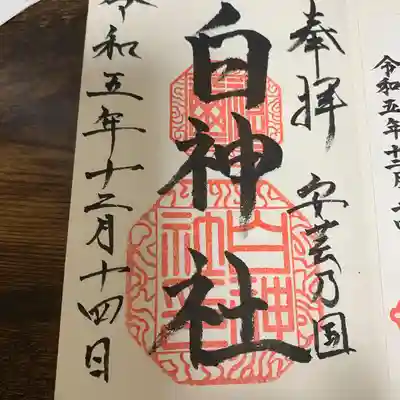 奉拝
安芸乃国
白神社
令和五年十二月十四日
白神社
令和五年十二月十四